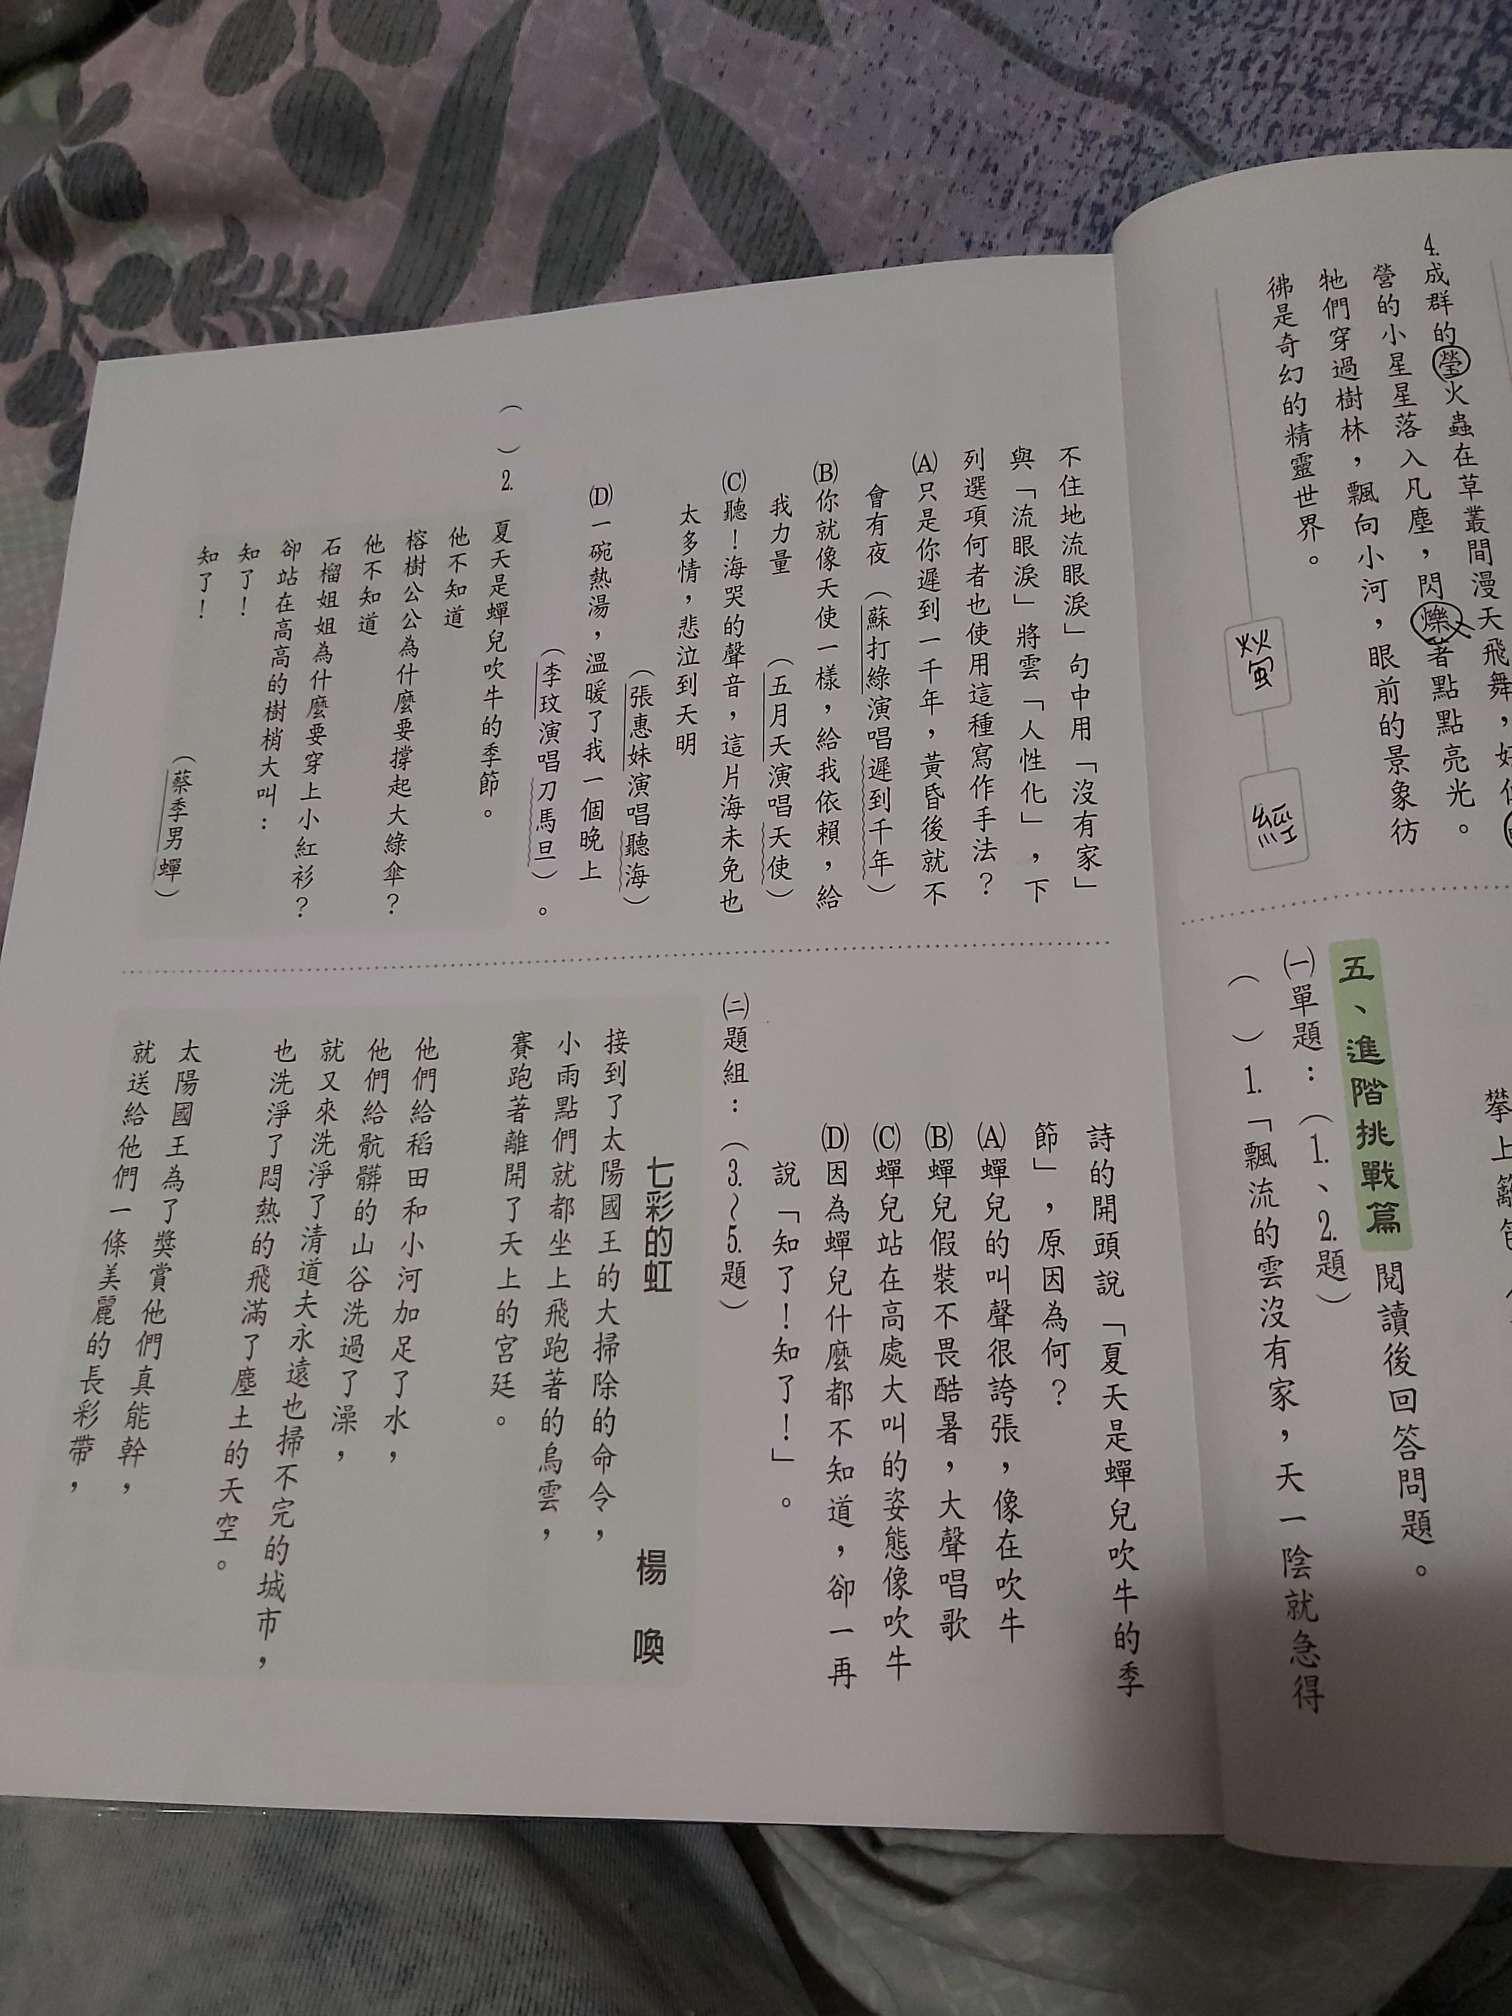 4.成群的瑩火蟲在草叢間漫天飛舞，好
營的小星星落入凡塵，閃爍著點點亮光。
牠們穿過樹林，飄向小河，眼前的景象彷
彿是奇幻的精靈世界。
螢
經
攀上籬
五、進階挑戰篇 閱讀後回答問題。
㈠單題：（1.、2.題）
（ ）1.「飄流的雲沒有家，天一陰就急得
不住地流眼淚」句中用「沒有家」
與「流眼淚」將雲「人性化」，下
列選項何者也使用這種寫作手法？
(A)只是你遲到一千年，黃昏後就不
會有夜（蘇打綠演唱遲到千年）
(B)你就像天使一樣，給我依賴，給
我力量（五月天演唱天使）
(C)聽！海哭的聲音，這片海未免也
太多情，悲泣到天明
（張惠妹演唱聽海）
(D)一碗熱湯，溫暖了我一個晚上
（李玟演唱刀馬旦）。
（ ）2.
夏天是蟬兒吹牛的季節。
他不知道
榕樹公公為什麼要撐起大綠傘？
他不知道
石榴姐姐為什麼要穿上小紅衫？
卻站在高高的樹梢大叫：
知了！
知了！
（蔡季男蟬）
詩的開頭說「夏天是蟬兒吹牛的季
節」，原因為何？
(A)蟬兒的叫聲很誇張，像在吹牛
(B)蟬兒假裝不畏酷暑，大聲唱歌
(C)蟬兒站在高處大叫的姿態像吹牛
(D)因為蟬兒什麼都不知道，卻一再
說「知了！知了！」。
㈡題組：（3.～5.題）
七彩的虹 楊 喚
接到了太陽國王的大掃除的命令，
小雨點們就都坐上飛跑著的烏雲，
賽跑著離開了天上的宮廷。
他們給稻田和小河加足了水，
他們給骯髒的山谷洗過了澡，
就又來洗淨了清道夫永遠也掃不完的城市，
也洗淨了悶熱的飛滿了塵土的天空。
太陽國王為了獎賞他們真能幹，
就送給他們一條美麗的長彩帶，